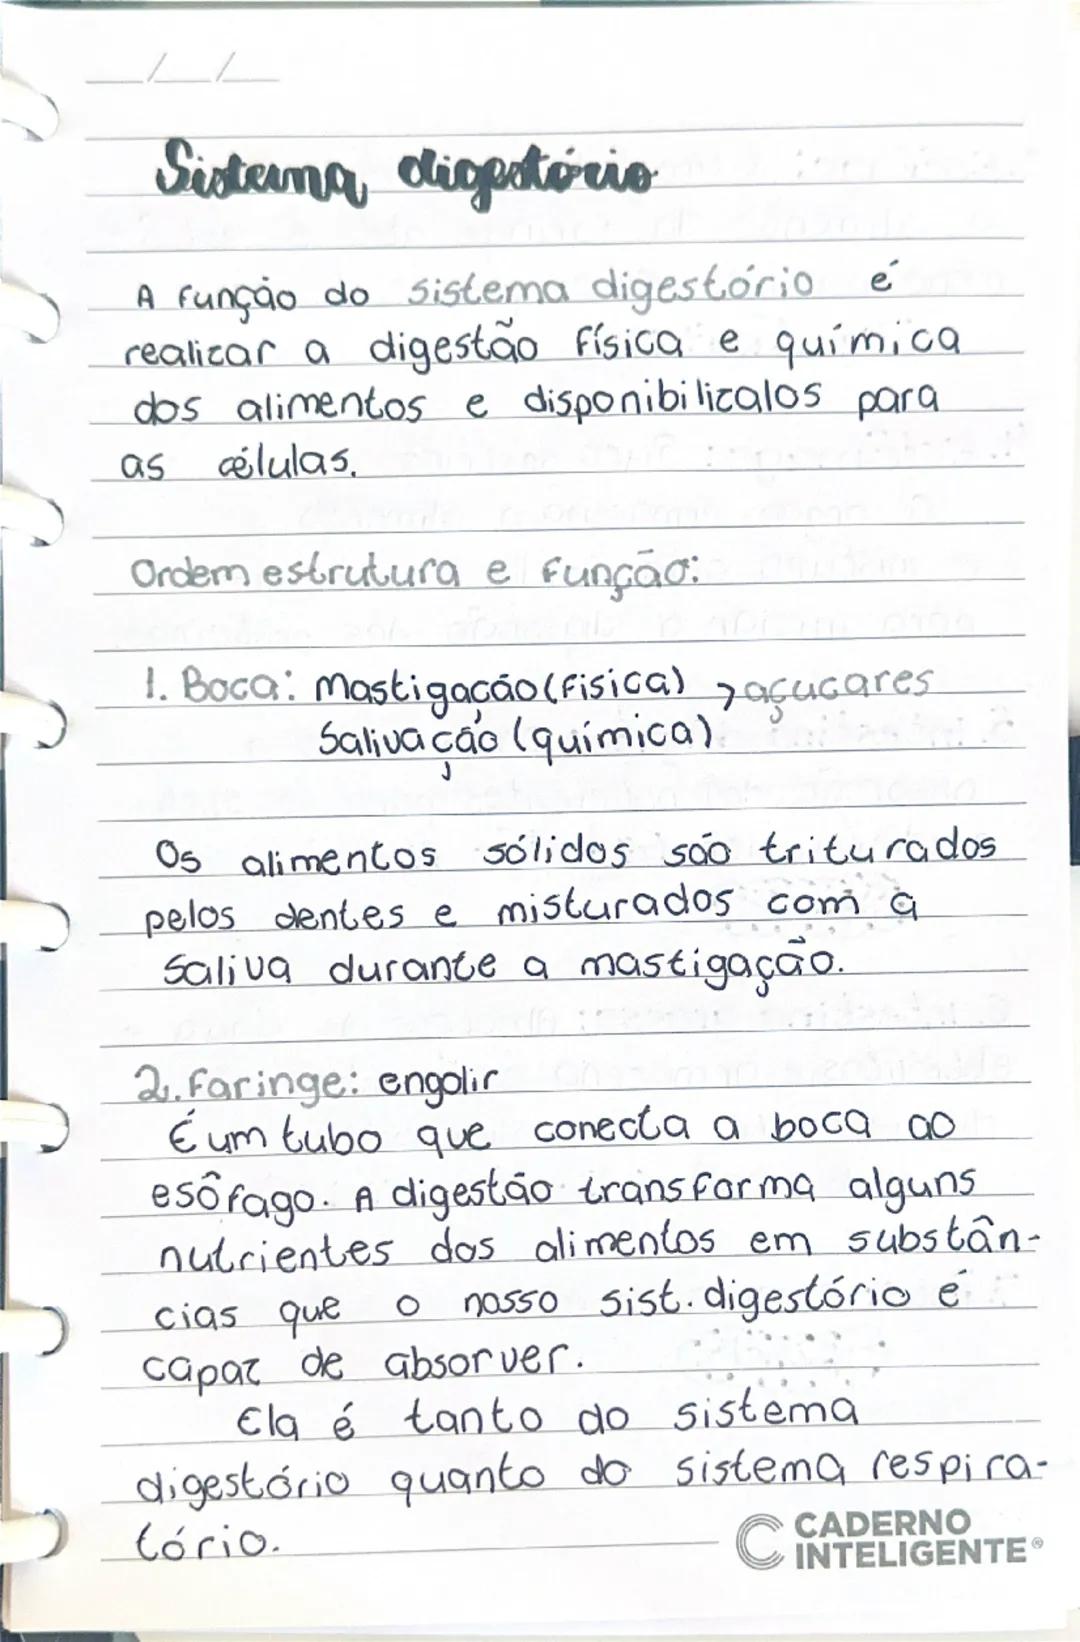 __/__/__
Sistema digestório
A função do sistema digestório é
realizar a digestão física e química
dos alimentos e disponibilizalos para
as células.
Ordem estrutura e função:
1. Boca: Mastigação (física) → açucares
Salivação (química)
Os alimentos sólidos são triturados
pelos dentes e misturados com a
saliva durante a mastigação.
2. Faringe: engolir
É um tubo que conecta a boca ao
esôfago. A digestão transforma alguns
nutrientes dos alimentos em substân-
cias que o nosso sist. digestório é
capaz de absorver.
Ela é tanto do sistema
digestório quanto do sistema respira-
tório.
CADERNO
INTELIGENTE®